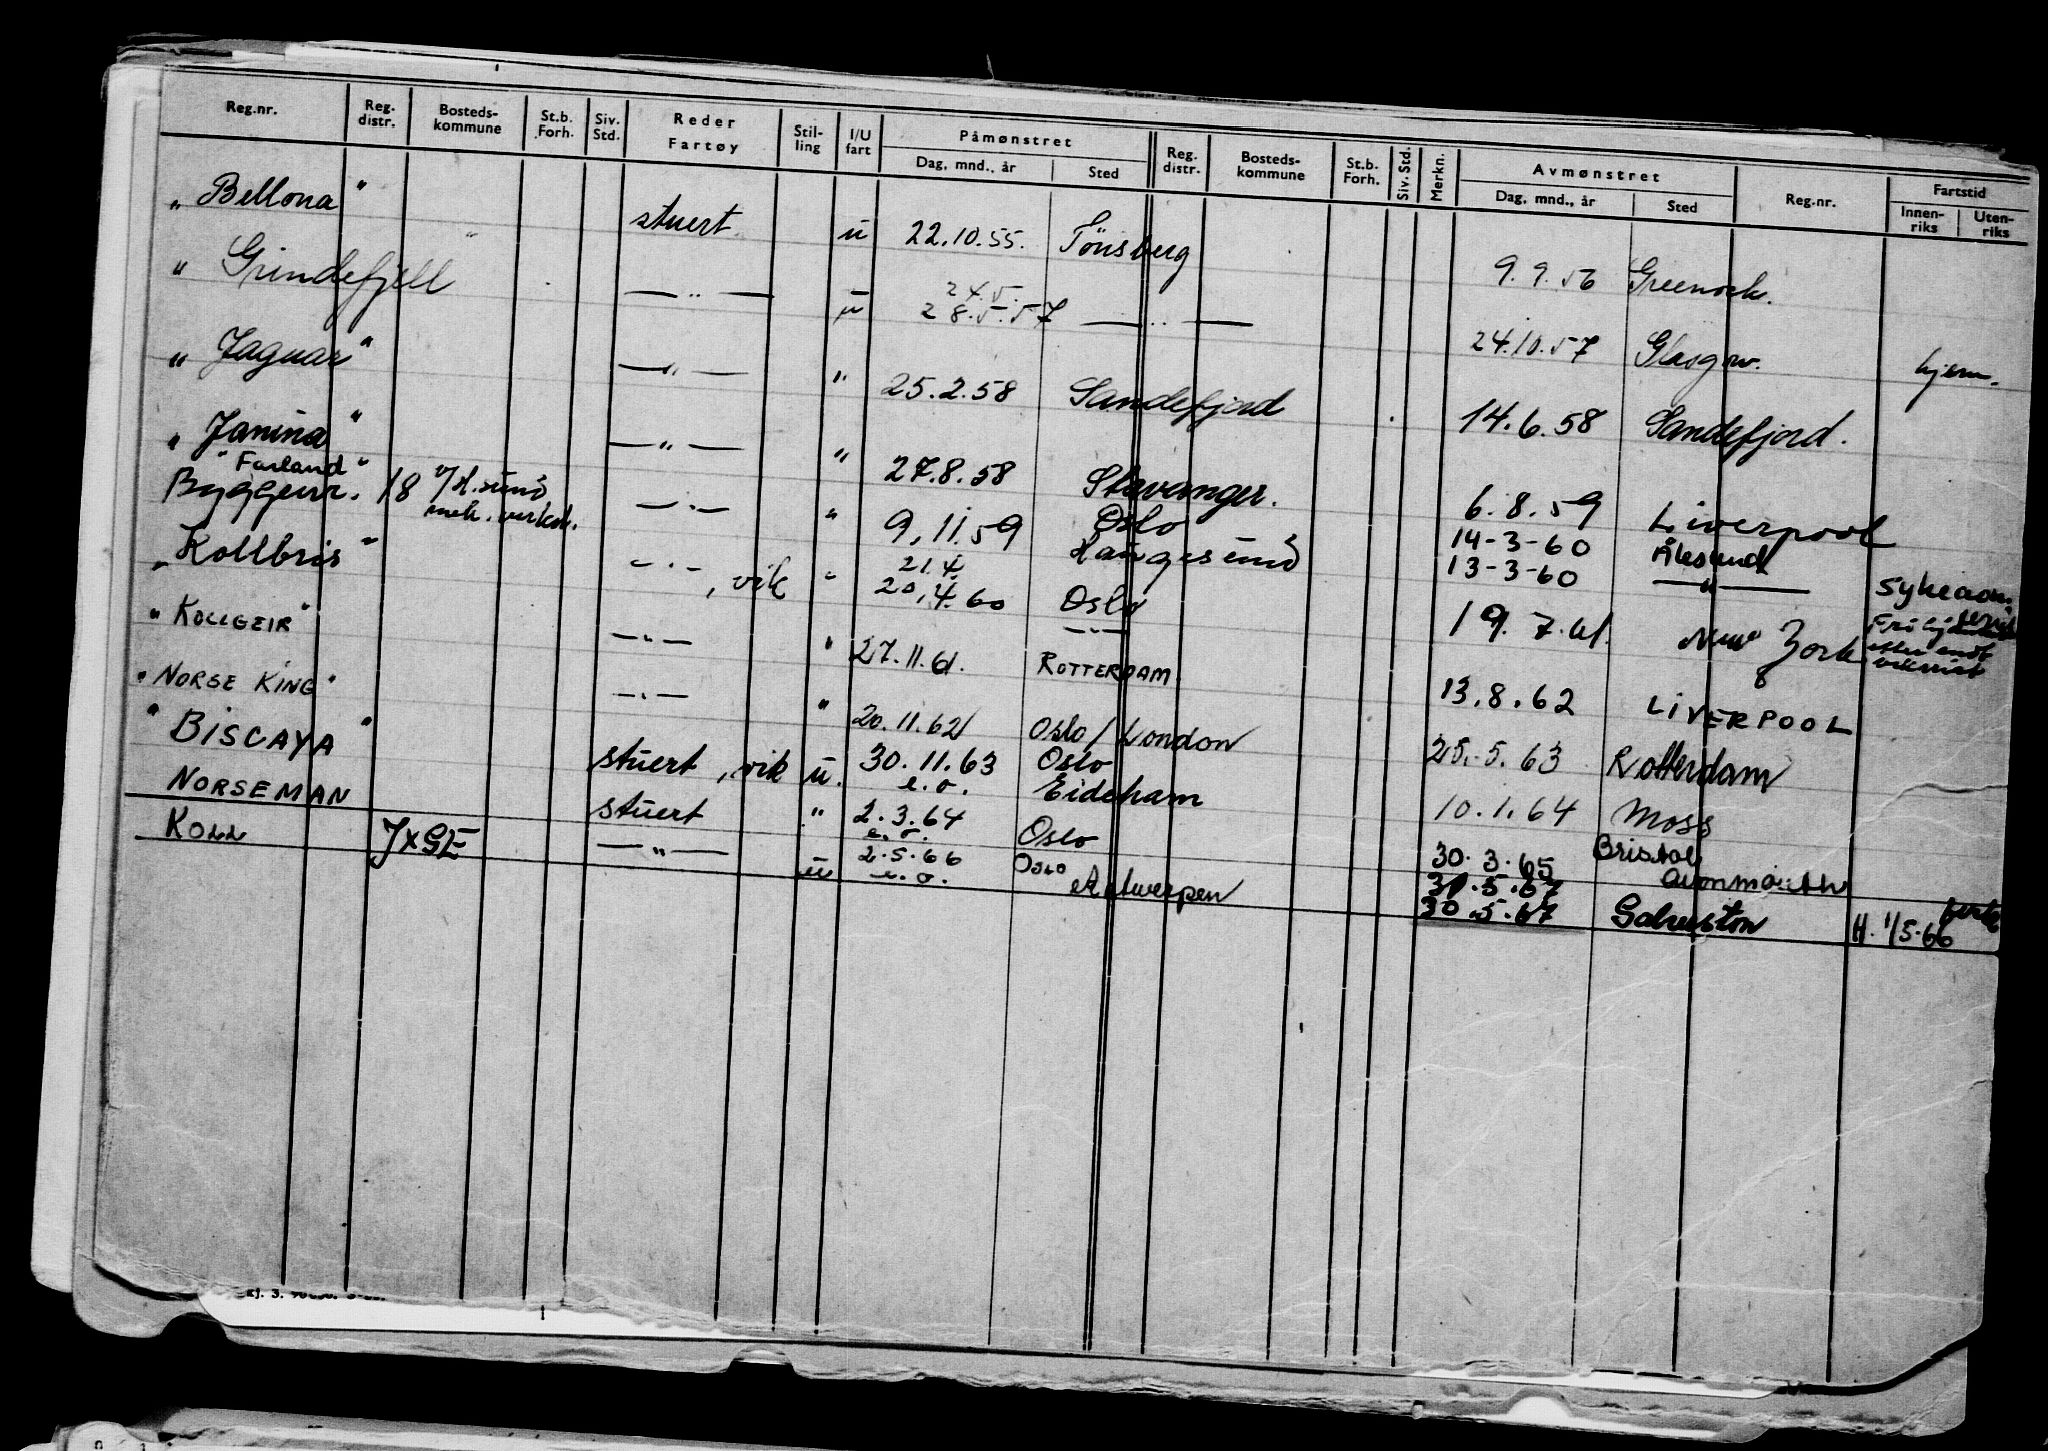 Reg.nr. Reg. distr. Bosteds-kommune St.b. Forh. Siv. Std. Reder Fartøy Stil-ling I/U fart Påmønstret Dag, mnd., år Sted Reg. distr. Bosteds-kommune St.b. Forh. Siv. Std. Merkn. Avmønstret Dag, mnd., år Sted Reg.nr. Fartstid Innen-riks Uten-riks
"Bellona" stuert u 22.10.55. Tönsberg 9.9.56 Greenock.
" Grindefjell — " — u 24.5. 28.5.57 — " — 24.10.57 Glasgow. hjem.
" Jaguar" — " — " 25.2.58 Sandefjord 14.6.58 Sandefjord.
" Janina" — " — " 27.8.58 Stavanger. 6.8.59 Liverpool
"Farland" Oslo 14-3-60 Ålesund
Byggenr. 18 v/L.sund mek. verkst. — " — " 9.11.59 Langesund 13-3-60 — " —
"Kollbris" — " — , vik " 21.4 20.4.60 Oslo — " — 19.7.61. New York
"KOLLGEIR" — " — " 27.11.61. ROTTERDAM 13.8.62 LIVERPOOL
"NORSE KING" — " — " 20.11.62 Oslo / London 25.5.63 Rotterdam
"BISCAYA" stuert, vik u. 30.11.63 e.o. Oslo 10.1.64 Moss
NORSEMAN stuert " 2.3.64 e.o. Oslo 30.3.65 Bristol Avonmouth
KOLL JXGE — " — u 2.5.66 e.o. OSLO Antwerpen 31.5.67 30.5.67 Galveston H. 1/5.66